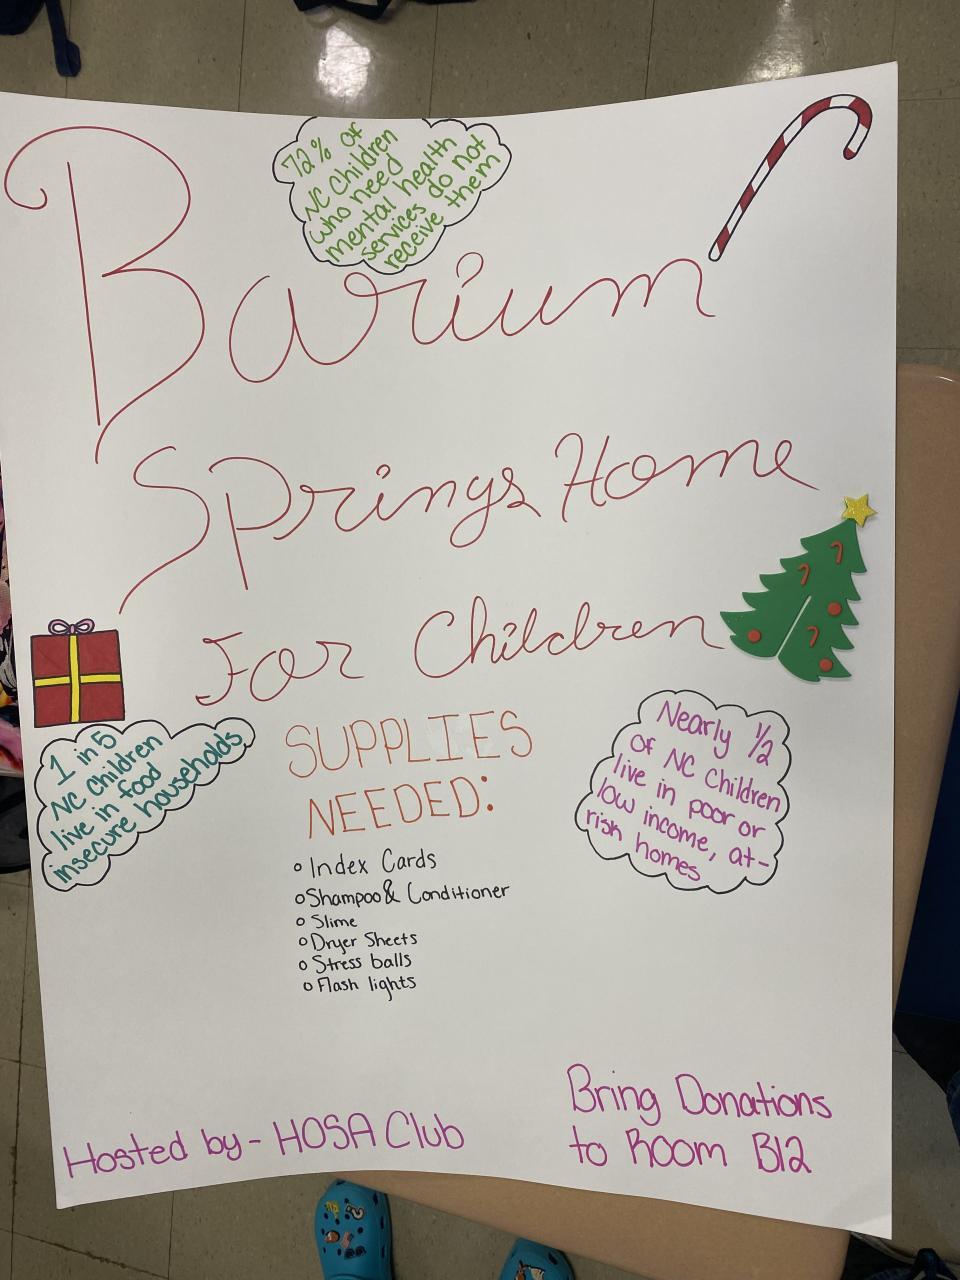 72% of
NC Children
who need
mental health
services do not
receive them
Barium
Springs Home
For Children
1 in 5
NC Children
live in food
insecure households
SUPPLIES
NEEDED:
Nearly 1/2
of NC Children
live in poor or
low income, at-
risk homes
Index Cards
Shampoo & Conditioner
Slime
Dryer Sheets
Stress balls
Flash lights
Hosted by - HOSA Club
Bring Donations
to Room B12